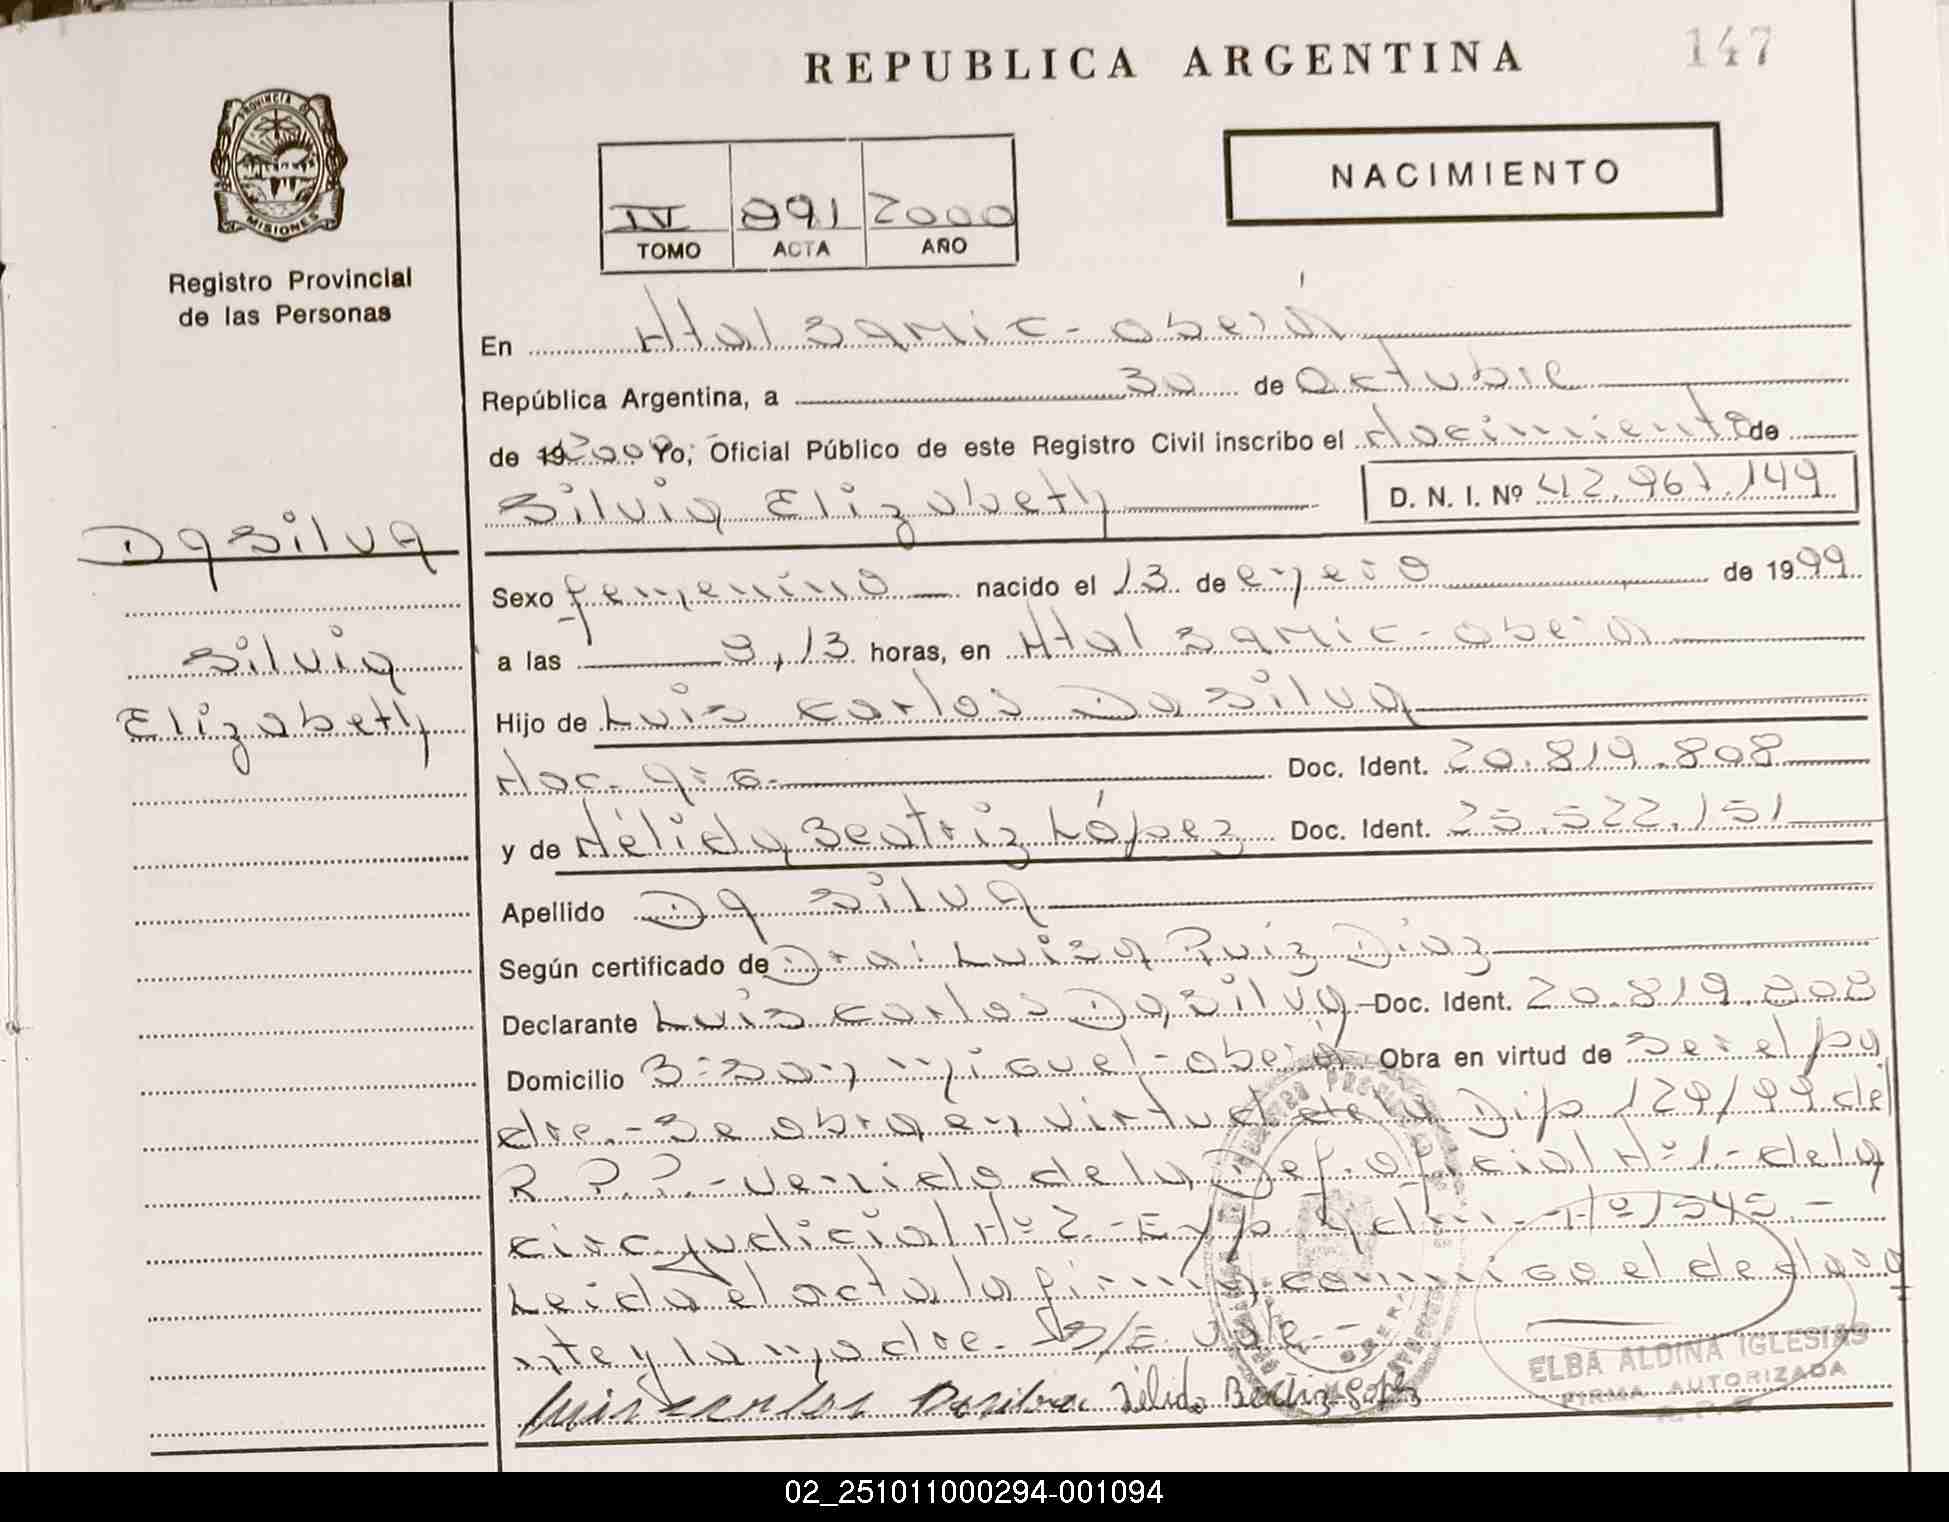 REPUBLICA ARGENTINA
147
PROVINCIA DE
MISIONES
Registro Provincial
de las Personas
NACIMIENTO
IV 891 2000
TOMO ACTA AÑO
En Htal Samic - Oberá
República Argentina, a 30 de Octubre
de 19 2000 Yo, Oficial Público de este Registro Civil inscribo el Nacimiento de
Silvia Elizabeth D. N. I. Nº 42.961.149
Da Silva
Silvia
Elizabeth
Sexo femenino nacido el 13 de enero de 1999
a las 9,13 horas, en Htal Samic - Oberá
Hijo de Luis Carlos Da Silva
Nac. Arg. Doc. Ident. 20.819.808
y de Nélida Beatriz López Doc. Ident. 25.522.151
Apellido Da Silva
Según certificado de Dra: Luisa Ruiz Diaz
Declarante Luis Carlos Da Silva - Doc. Ident. 20.819.808
Domicilio B: San Miguel - Oberá Obra en virtud de Ser el pa
dre.- Se obra en virtud de la Dip 129/99 del
R.P.P.- Venido de la Def. Oficial Nº 1.- de la
Circ. Judicial Nº 2.- Exp. Adm. Nº 1545.-
Leida el acta la firman conmigo el declara
nte y la madre. S/E. Vale.-
Luis Carlos Dasilva Nélida Beatriz Lopez
ELBA ALDINA IGLESIAS
FIRMA AUTORIZADA
R.P.P.
02_251011000294-001094